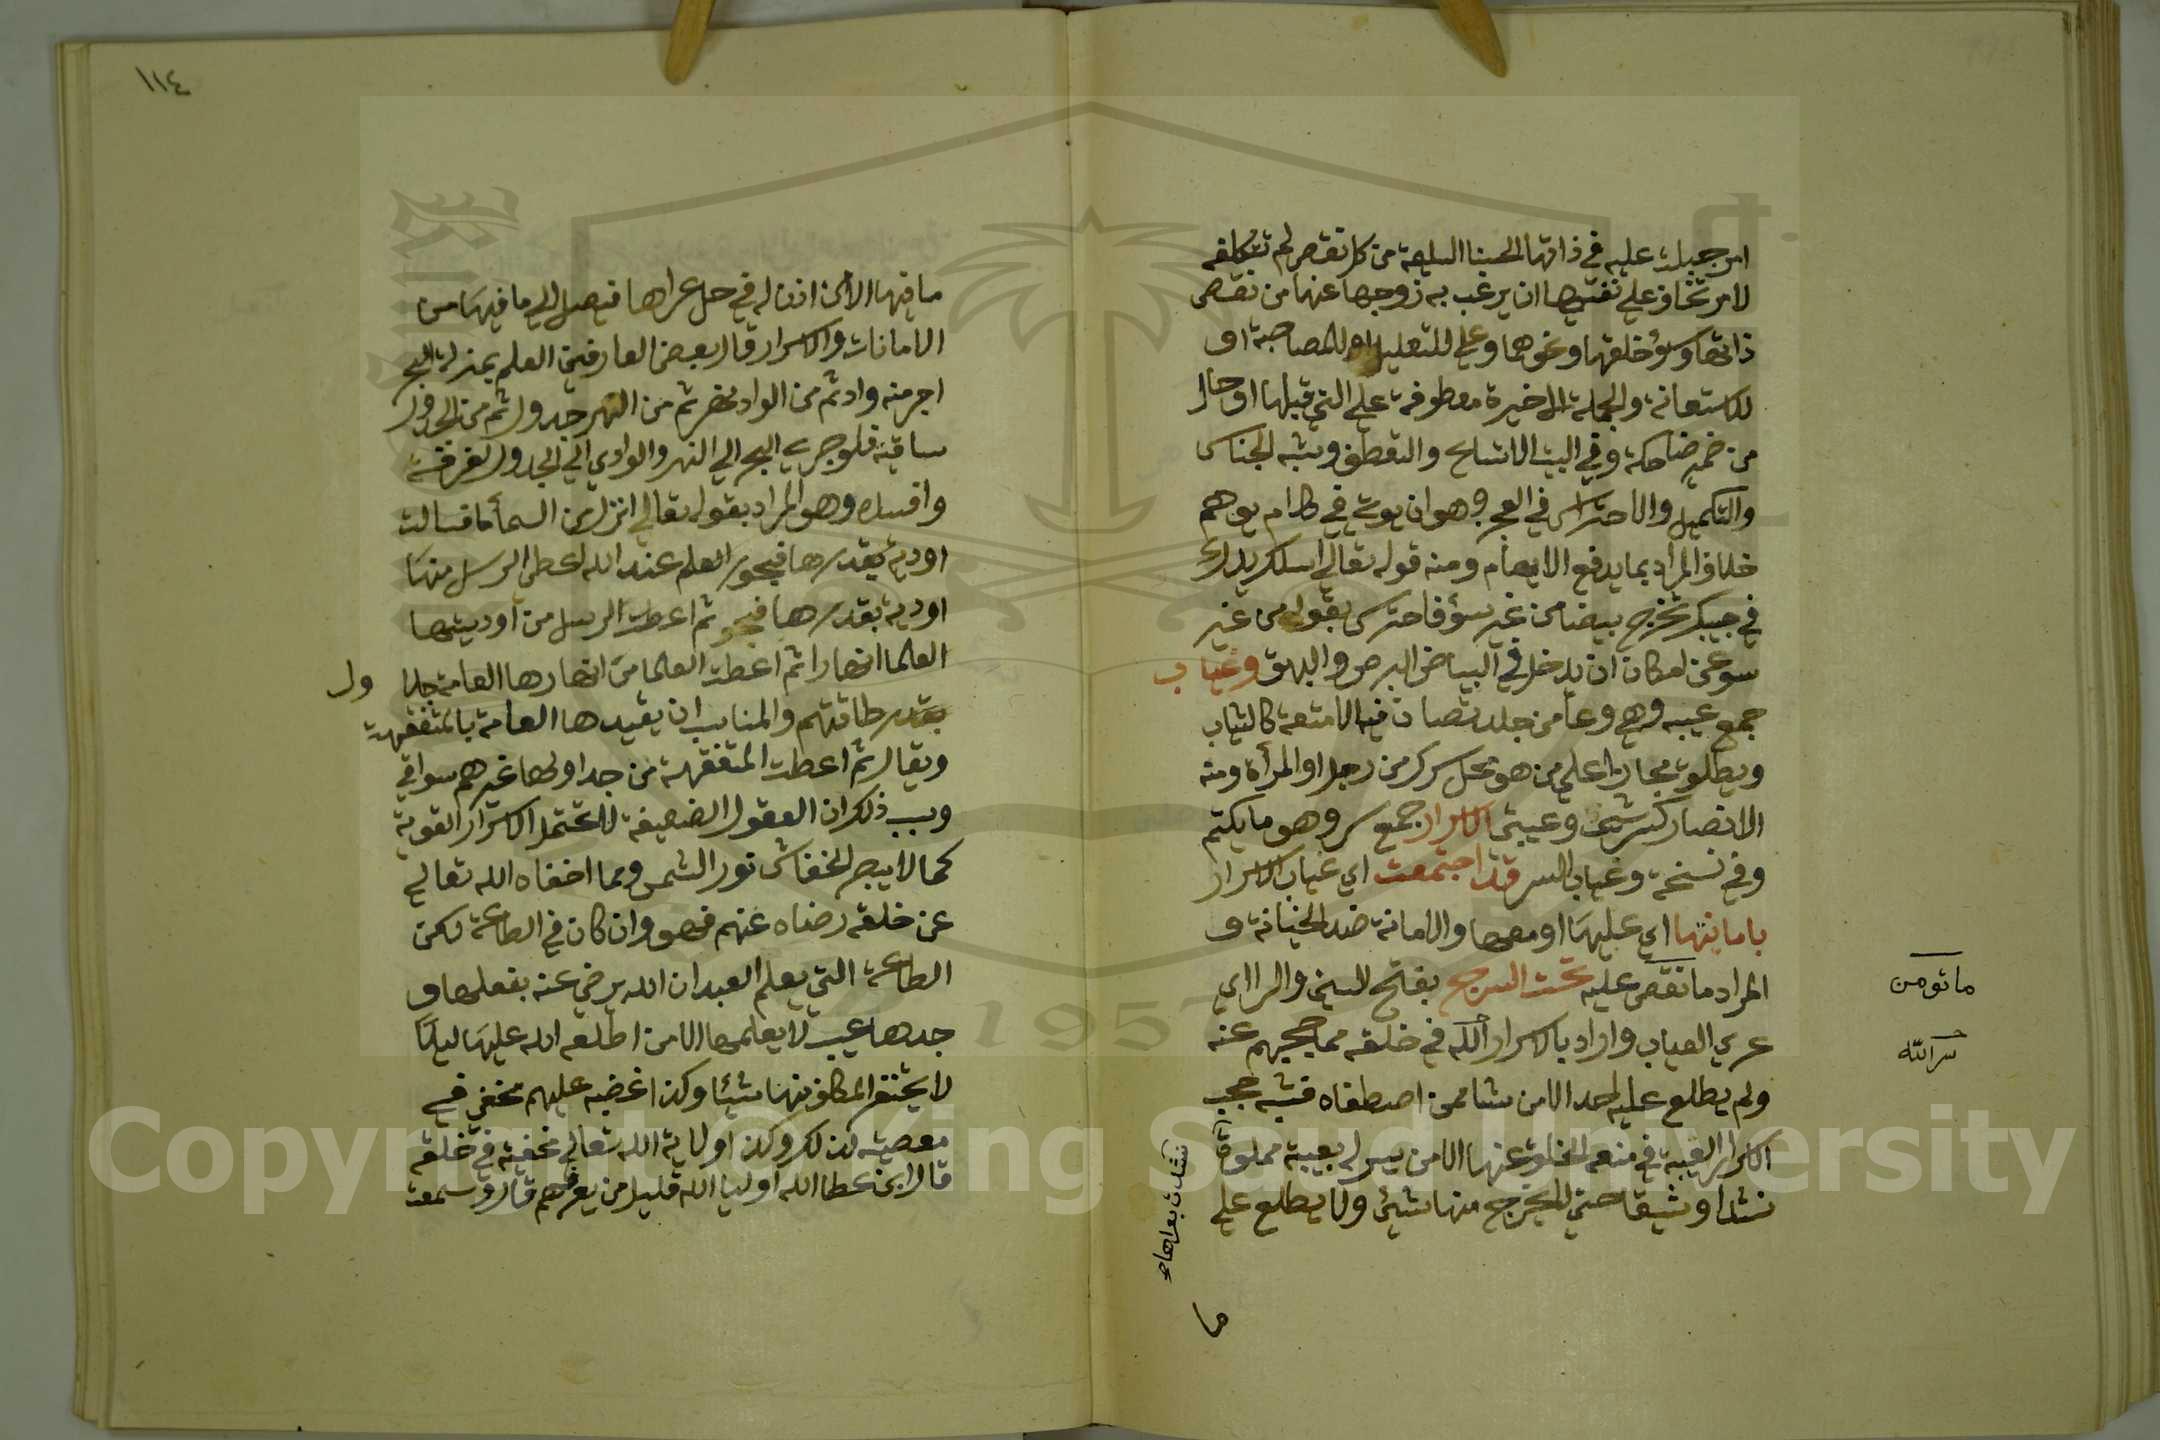 امر جبلت عليه في ذاتها الحسنا السليمة من كل نقص لم تتكلفه
لامر تخاف على نفسها ان يرغب به زوجها عنها من نقص
ذاتها وسؤ خلقها ونحوهما وعلي للتعليل او للمصاحبة او
للاستعانة والجملة الاخيرة معطوفة علي التي قبلها او حال
من ضمير ضاحكة وفي البيت الاتساع والتعطف وشبه الجناس
والتكميل والاحتراس في العجز وهو ان يوتي في كلام يوهم
خلاف المراد بما يدفع الايهام ومنه قوله تعالي اسلك يدك
في جيبك تخرج بيضا من غير سؤ فاحترس بقوله من غير
سو عن امكان ان يدخل في البياض البرص والبهق وعياب
جمع عيبه وهي وعا من جلد تصان فيه الامتعة كالثياب
ويطلق مجازا علي من هو محل سرك من رجل او المرأة ومنه
الانصار كرشي وعيبتي الاسرار جمع سر وهو ما يكتم
وفي نسخة وعياب السر قد اجتمعت اي عياب الاسرار
بامانتها اي عليها او معها والامانة ضد الخيانة و
المراد ما تقص عليه تحت السرج بفتح السين والرا اي
عري العياب واراد بالاسرار الله في خلقه مما حجبهم عنه
ولم يطلع عليه احد الا من شا ممن اصطفاه فشبه حجب
الاسرار الغيبة في منعه الخلق عنها الا من يسر له بعيبة مملوة
نشدا وثيقا حتي لا يخرج منها شئ ولا يطلع علي
ما تومن
سر الله
ما
١١٤
ما فيها الا من اذن له في حل عراها فيصل الي ما فيها من
الامانات والاسرار قال بعض العارفين العلم بمنزلة البحر
اجر منه واد ثم من الواد نهر ثم من النهر جدول ثم من الجدول
ساقية فلو جري البحر الي النهر والوادي الي الجدول لغرقه
وافسده وهو المراد بقوله تعالي انزل من السمأ ما فسالت
اودية بقدرها فبحور العلم عند الله اعطي الرسل منها
اودية بقدرها ثم اعطت الرسل من اوديتها
العلما انهارا ثم اعطت العلما من انهارها العامة جدا ول
بقدر طاقتهم والمناسب ان يقيدها العامة بالمتفقهة
ويقال ثم اعطت المتفقهة من جداولها غيرهم سواقي
وسبب ذلك ان العقول الضعيفة لا تحتمل الاسرار القوية
كما لا يبصر الخفاش نور الشمس ومما اخفاه الله تعالي
عن خلقه رضاه عنهم فهو وان كان في الطاعة لكن
الطاعة التي يعلم العبد ان الله يرضي عنه بفعلها و
جدها عيب لا يعلمها الا من اطلعه الله عليها ليلا
لا يحتقر المكلف منها شيئا وكذا غضبه عليهم مخفي في
معصيته كذلك وكذا ولاية الله تعالي مخفية في خلقه
قال ابن عطا الله اوليا الله قليل من يعرفهم قال وسمعت